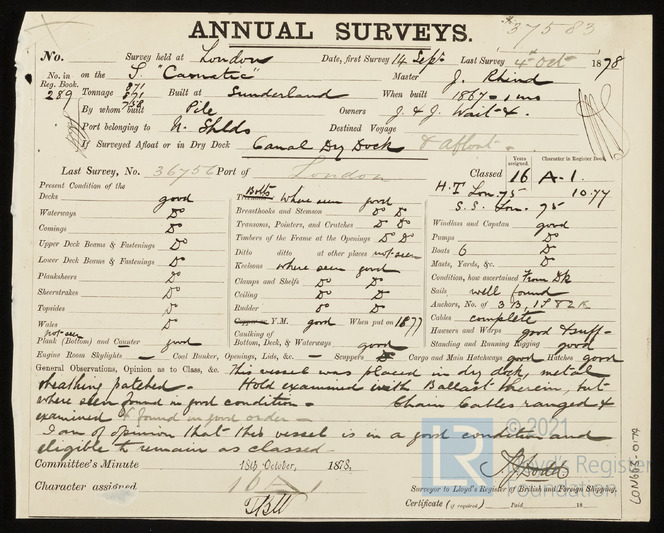 ANNUAL SURVEYS.
37583
No. Survey held at London Date, first Survey 14 Sept. Last Survey 4th Oct 1878
No. in Reg. Book. 289 on the S. "Carnatic" Master J. Rhind
Tonnage 871 872 758 Built at Sunderland When built 1867
By whom built Pile Owners J. & J. Wait & .
Port belonging to N. Shlds Destined Voyage
If Surveyed Afloat or in Dry Dock Canal Dry Dock & afloat.
Last Survey, No. 36756 Port of London
Years assigned. Character in Register Book.
Classed 16 A.1.
H.T Lon. 75 10.77
S.S. Lon. 75
Present Condition of the
Decks good
Waterways Do
Comings Do
Upper Deck Beams & Fastenings Do
Lower Deck Beams & Fastenings Do
Planksheers Do
Sheerstrakes Do
Topsides Do
Wales Do
Plank (Bottom) and Counter not seen good
Engine Room Skylights — Coal Bunker, Openings, Lids, &c. — Scuppers Do Cargo and Main Hatchways good Hatches good
Bolts where seen good
Breasthooks and Stemson Do Do
Transoms, Pointers, and Crutches Do Do
Timbers of the Frame at the Openings Do Do
Ditto ditto at other places not seen
Keelsons where seen good
Clamps and Shelfs Do Do
Ceiling Do Do
Rudder Do Do
Y.M. good When put on 1877
Caulking of
Bottom, Deck, & Waterways good
Windlass and Capstan good
Pumps Do
Boats 6 Do
Masts, Yards, &c. Do
Condition, how ascertained From Dk
Sails well found
Anchors, No. of 3 B, 1 S & 2 K
Cables complete
Hawsers and Warps good & suff-
Standing and Running Rigging good
General Observations, Opinion as to Class, &c. This vessel was placed in dry dock, metal
sheathing patched. Hold examined with Ballast therein, but
where seen found in good condition. Chain Cables ranged &
examined & found in good order.
I am of opinion that this vessel is in a good condition and
eligible to remain as classed.
Committee's Minute 18th October, 1878.
Character assigned 16 A 1
Surveyor to Lloyd's Register of British and Foreign Shipping.
Certificate (if required) Paid 18
© 2021
Lloyd's Register
Foundation
LR
LON663-0179